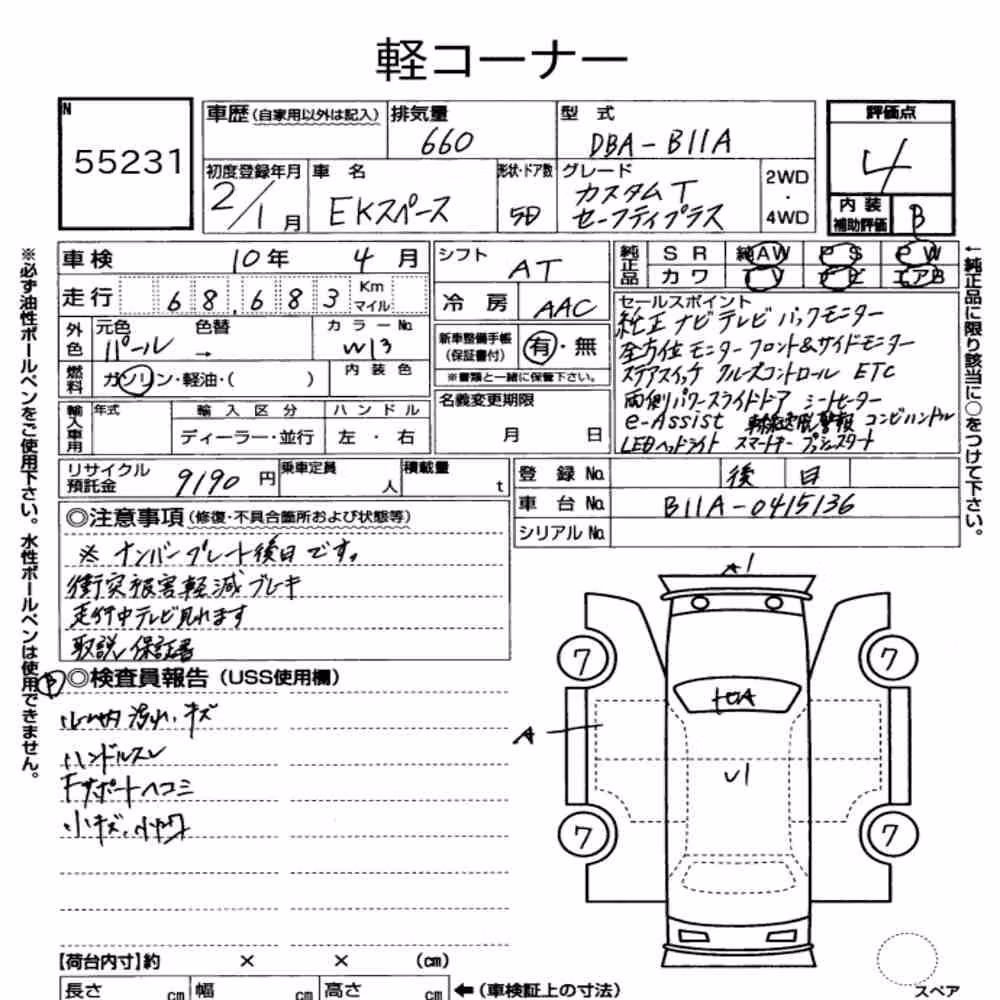 軽コーナー
N
55231
車歴(自家用以外は記入)
排気量
660
型式
DBA-B11A
評価点
4
初度登録年月
2/1月
車名
EKスペース
形状・ドア数
5D
グレード
カスタムT
セーフティプラス
2WD
・
4WD
内装
補助評価
B
車検 10年 4月
シフト
AT
純正品
SR 純AW PS PW
カワ TV ナビ エアB
走行 68,683 Km
マイル
冷房
AAC
外色
元色
パール
色替
→
カラーNo.
W13
新車整備手帳
(保証書付)
有・無
※書類と一緒に保管下さい。
燃料
ガソリン・軽油・( )
内装色
名義変更期限
月 日
輸入車用
年式
輸入区分
ディーラー・並行
ハンドル
左・右
セールスポイント
純正ナビテレビ バックモニター
全方位モニター フロント&サイドモニター
ステアスイッチ クルーズコントロール ETC
両側パワースライドドア シートヒーター
e-Assist 車線逸脱警報 コンビハンドル
LEDヘッドライト スマートキー プッシュスタート
リサイクル
預託金
9190円
乗車定員
人
積載量
t
登録No.
後日
車台No.
B11A-0415136
シリアルNo.
◎注意事項(修復・不具合箇所および状態等)
※ナンバープレート後日です。
衝突被害軽減ブレーキ
走行中テレビ見れます
取説 保証書
◎検査員報告(USS使用欄)
内 汚れ、キズ
ハンドルスレ
Fサポートヘコミ
小キズ、
A1
7
7
A
U1
7
7
【荷台内寸】約 × × (cm)
長さ cm
幅 cm
高さ cm
←(車検証上の寸法)
スペア
※必ず油性ボールペンをご使用下さい。水性ボールペンは使用できません。
←純正品に限り該当に○をつけて下さい。